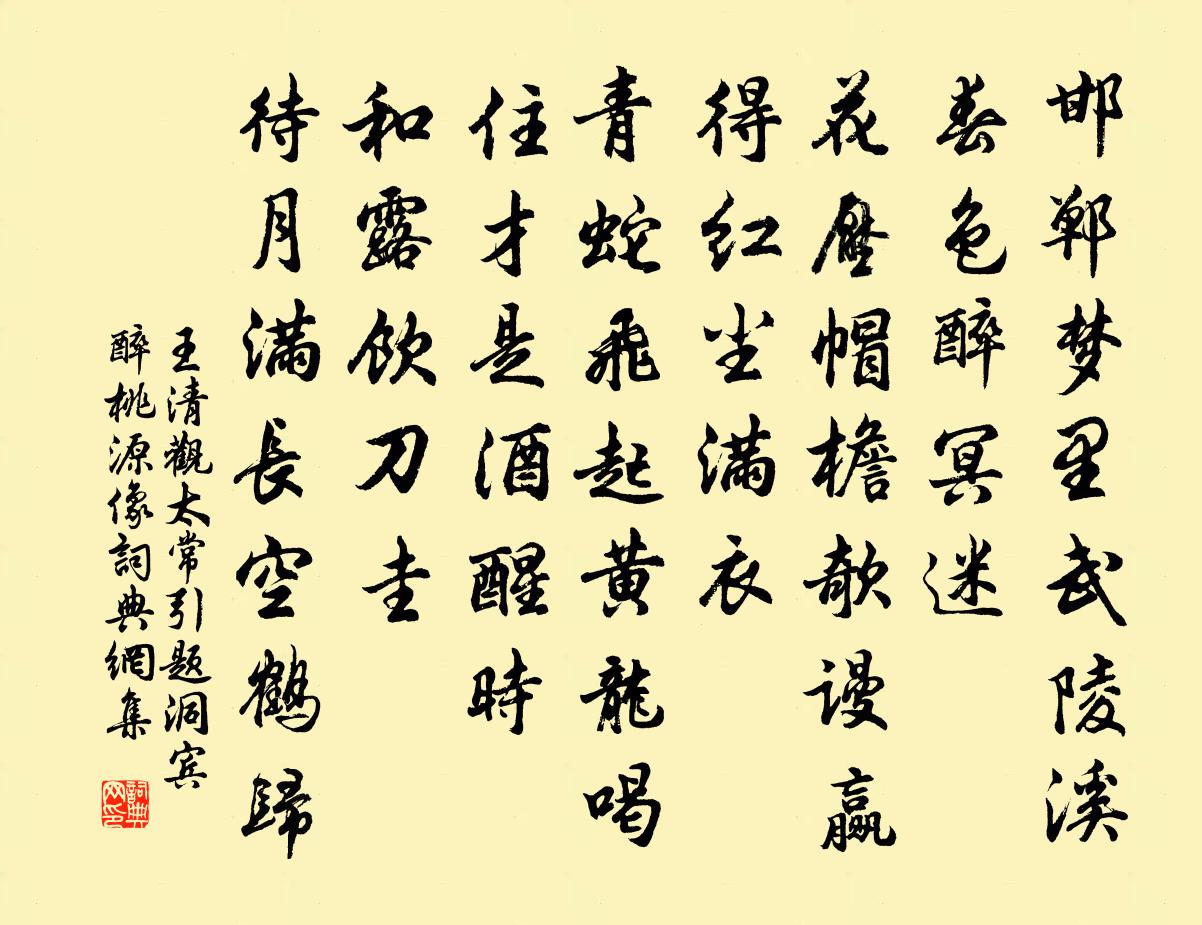 邯郸梦里武陵溪
春色醉冥迷
花压帽檐欹谩赢
得红尘满衣
青蛇飛起黄龍喝
住才是酒醒時
和露飲刀圭
待月满長空鹤歸
王清觀太常引题洞宾
醉桃源像詞典網集
詞典
网印